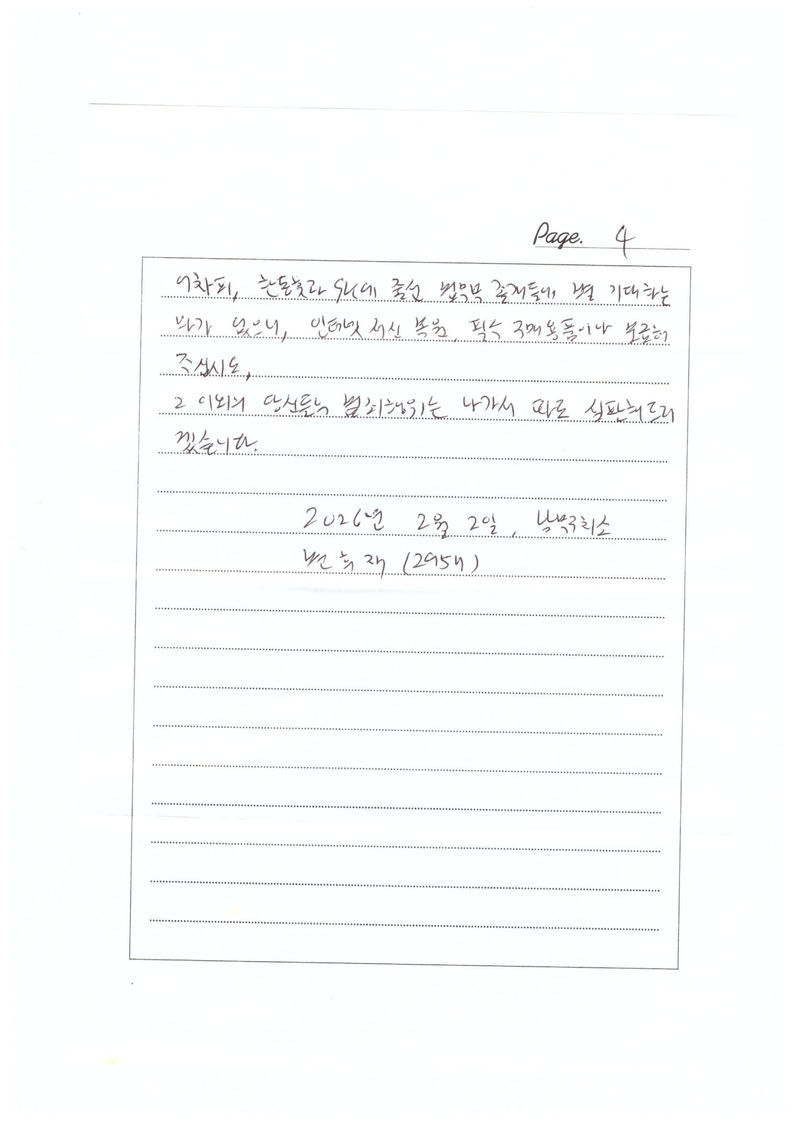 Page. 4
어차피, 한동훈과 SK에 줄선 법무부 졸개들에, 별 기대하는
바가 없으니, 인터넷 서신 복원, 필수 구매용품이나 보급해
주십시오,
그 이외의 당신들의 범죄행위는 나가서 따로 심판해드리
겠습니다.
2026년 2월 2일, 남부구치소
변희재 (2954)